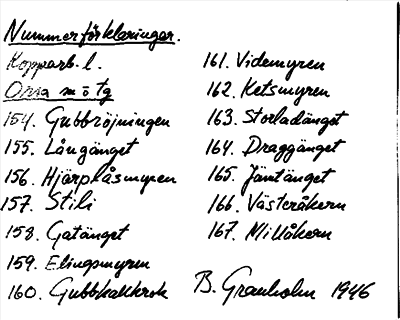 Nummerförklaringar.
Kopparb. l.
Orsa s o tg
154. Gubbröjningen
155. Långänget
156. Hjärplåsmyren
157. Stili
158. Gatänget
159. Elingsmyren
160. Gubbkakkrok
161. Videmyren
162. Ketsmyren
163. Storladänget
164. Draggänget
165. Jämtänget
166. Västeråkern
167. Millåkern
B. Granholm 1946